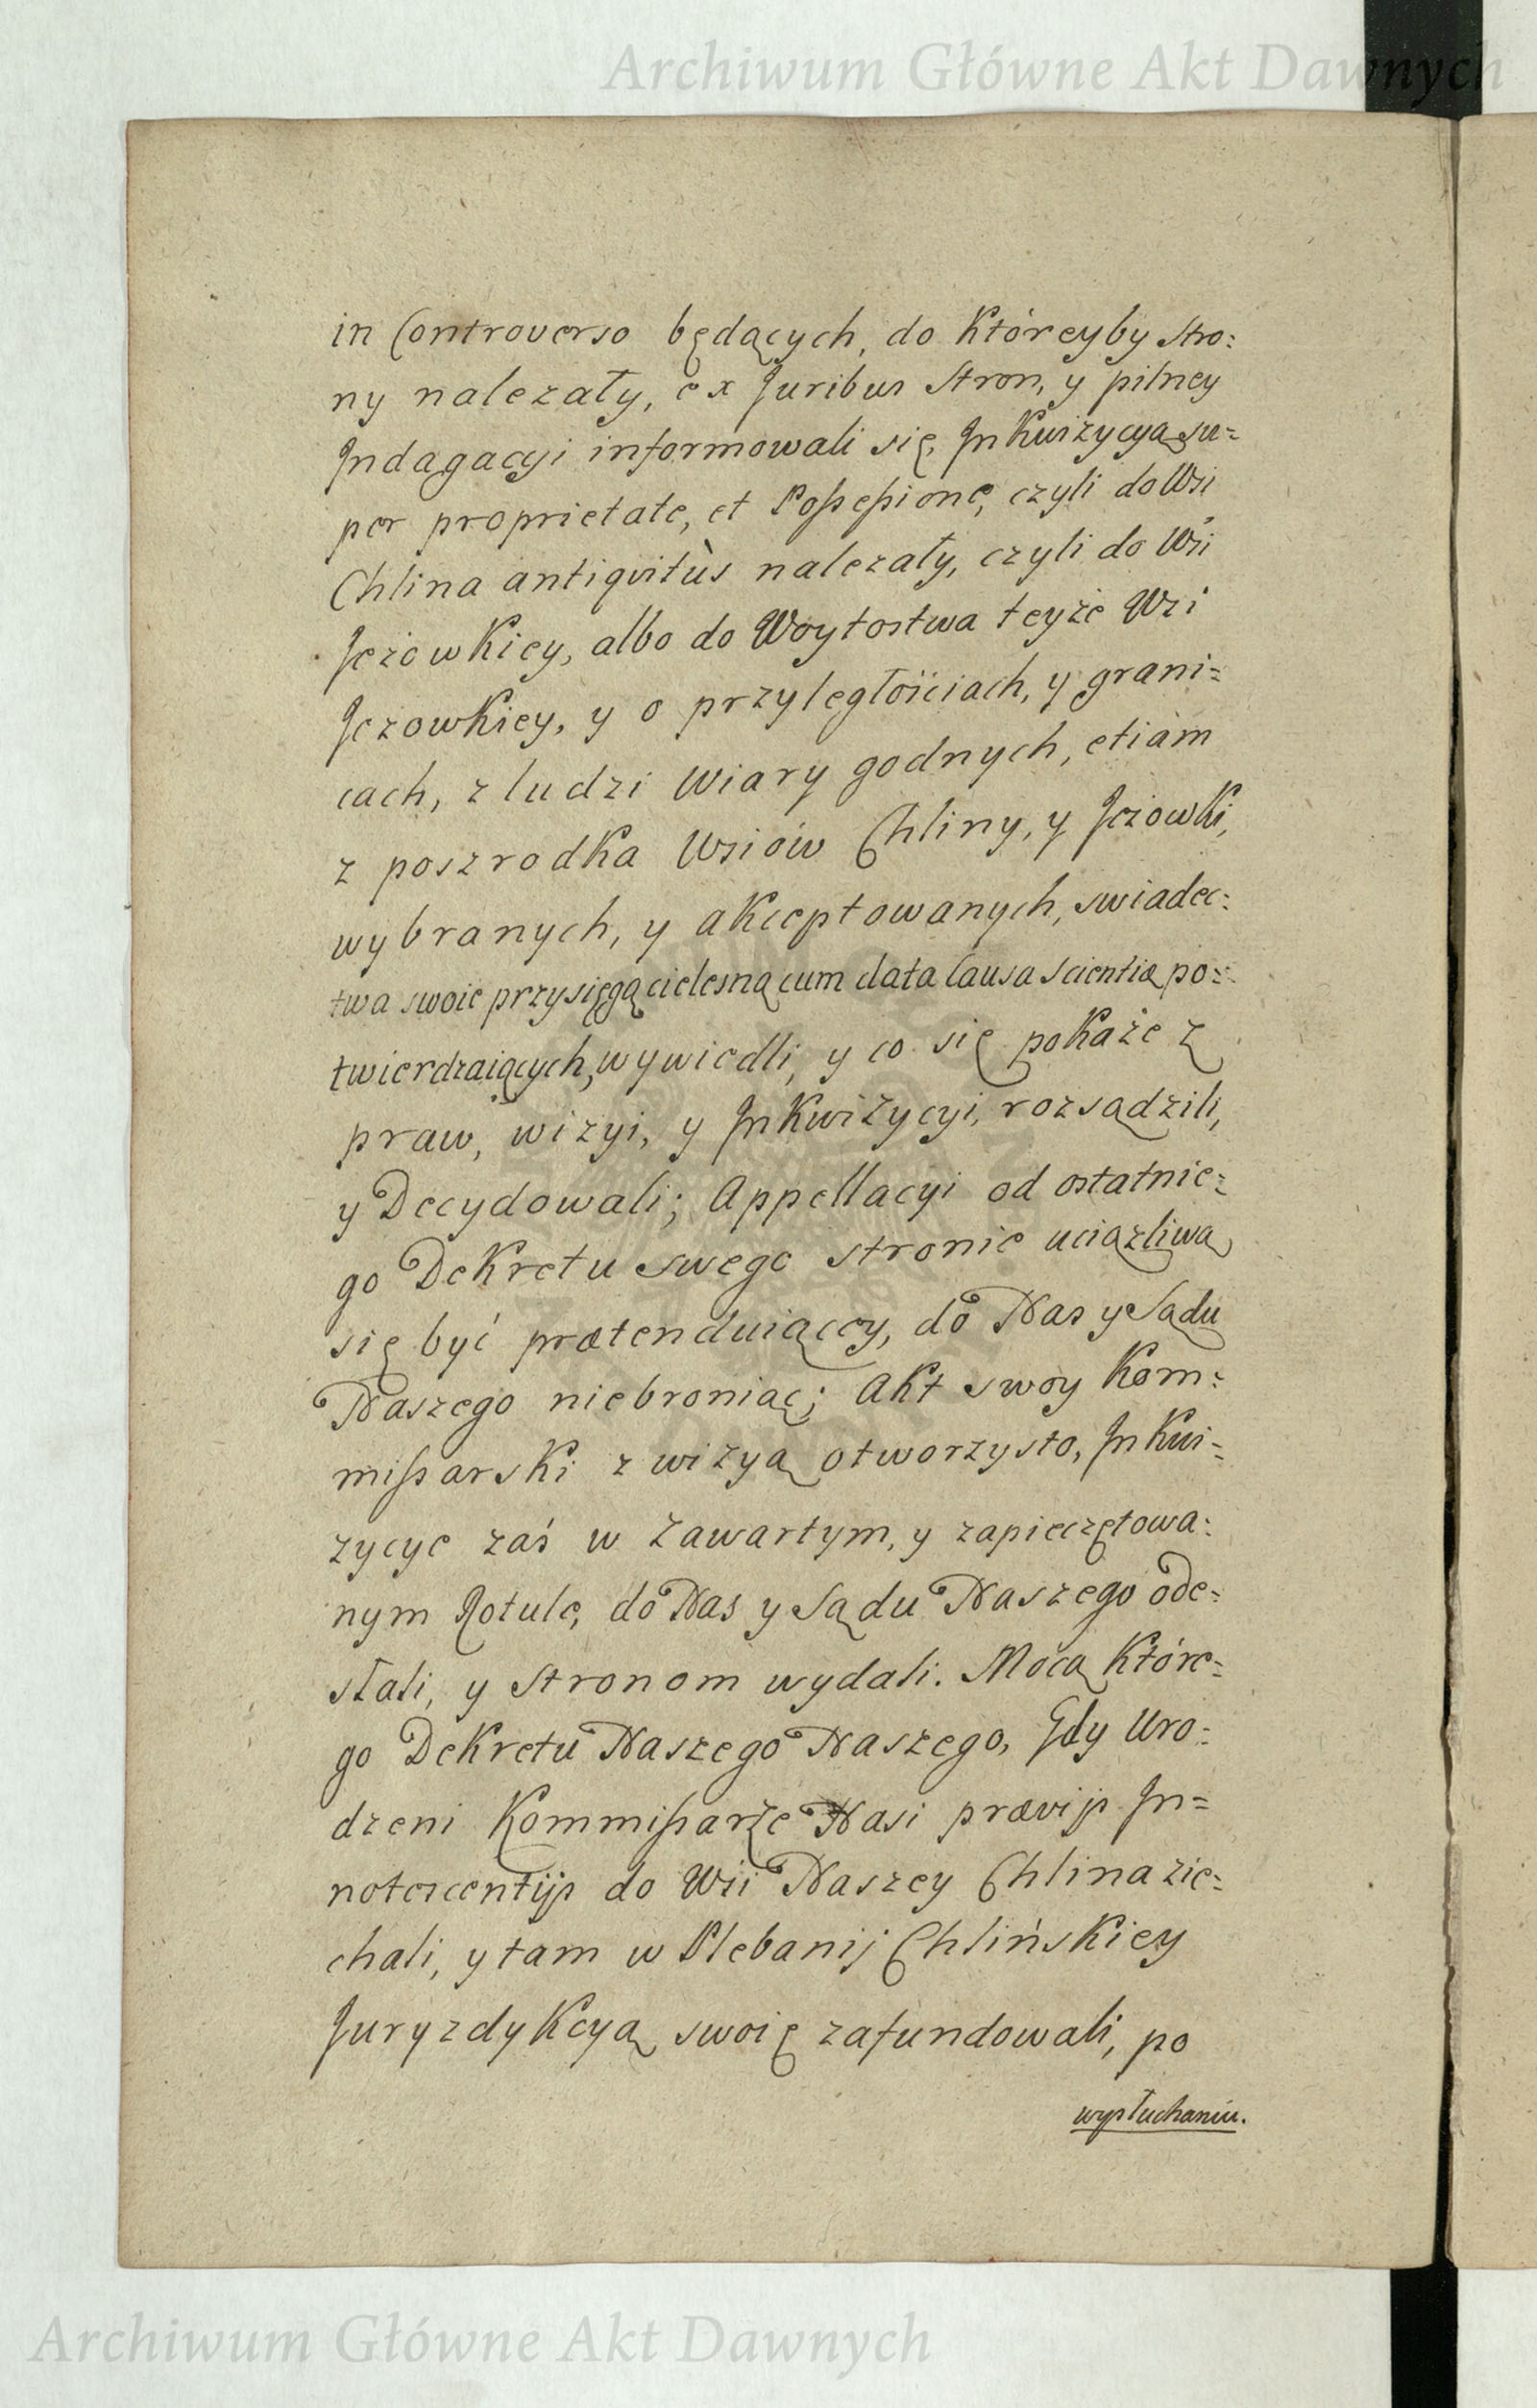 Archiwum Główne Akt Dawnych
in Controverso będących, do któreyby Stro:
ny nalezały, ex Juribus Stron, y pilney
Indagacyi informowali się, Inkwizycyą su=
per proprietate, et Possessione, czyli do Wsi
Chlina antiqvitùs nalezały, czyli do Wsi
Jeżowkiey, albo do Woytostwa teyże Wsi
Jezowkiey, y o przyległościach, y grani=
cach, z ludzi wiary godnych, etiam
z poszrodka Wsiów Chliny, y Jeżowki,
wybranych, y akceptowanych, swiadec:
twa swoie przysięgą cielesną cum data Causa Scientiæ po:
twierdzaiących, wywiedli, y co się pokaże z
praw, wizyi, y Inkwizycyi, rozsądzili,
y Decydowali; Appellacyi od ostatnie:
go Dekretu swego stronie uciążliwą
się być prætenduiącey, do Nas y Sądu
Naszego niebroniąc; Akt swoy Kom:
missarski z wizyą otworzysto, Inkwi=
zycye zaś w zawartym, y zapieczętowa:
nym Rotule, do Nas y Sądu Naszego ode:
słali, y Stronom wydali. Mocą które:
go Dekretu Naszego Naszego, Gdy Uro:
dzeni Kommissarze Nasi prævijs In=
notescentijs do Wsi Naszey Chlina zie:
chali, y tam w Plebanij Chlińskiey
Juryzdykcyą swoię zafundowali, po
wysłuchaniu.
Archiwum Główne Akt Dawnych